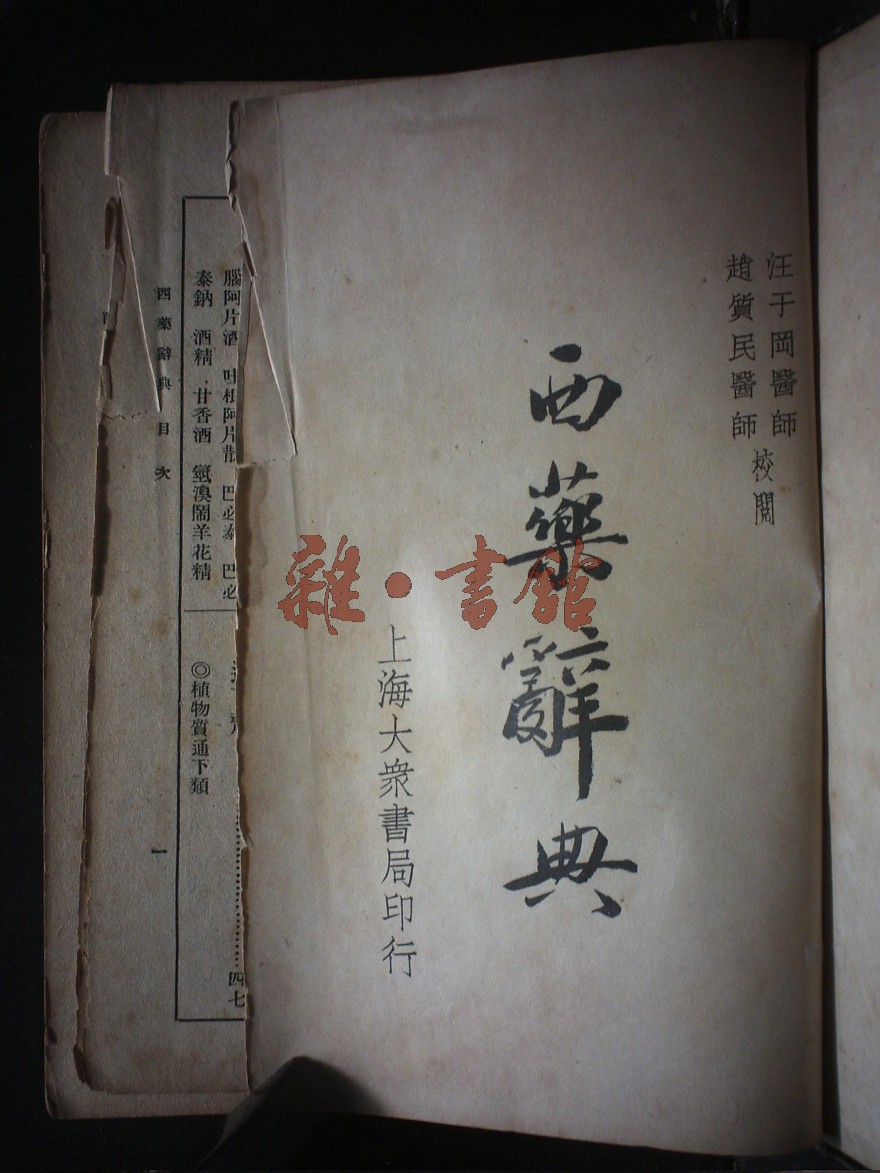 汪于岡醫師
趙質民醫師
校閱
西藥辭典
上海大衆書局印行
雜·書館
腦阿片酒 吐根阿片散 巴必泰 巴必
四七
泰鈉 酒精 甘香酒 䥕溴鬧羊花精
◎植物質通下類
西藥辭典目次
一